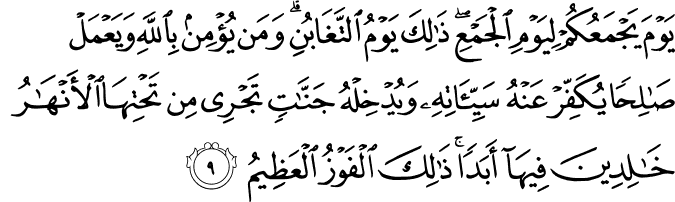 يَوْمَ يَجْمَعُكُمْ لِيَوْمِ ٱلْجَمْعِ ۖ ذَٰلِكَ يَوْمُ ٱلتَّغَابُنِ ۗ وَمَن يُؤْمِنۢ بِٱللَّهِ وَيَعْمَلْ
صَٰلِحًا يُكَفِّرْ عَنْهُ سَيِّـَٔاتِهِۦ وَيُدْخِلْهُ جَنَّٰتٍ تَجْرِى مِن تَحْتِهَا ٱلْأَنْهَٰرُ
خَٰلِدِينَ فِيهَآ أَبَدًا ۚ ذَٰلِكَ ٱلْفَوْزُ ٱلْعَظِيمُ ٩